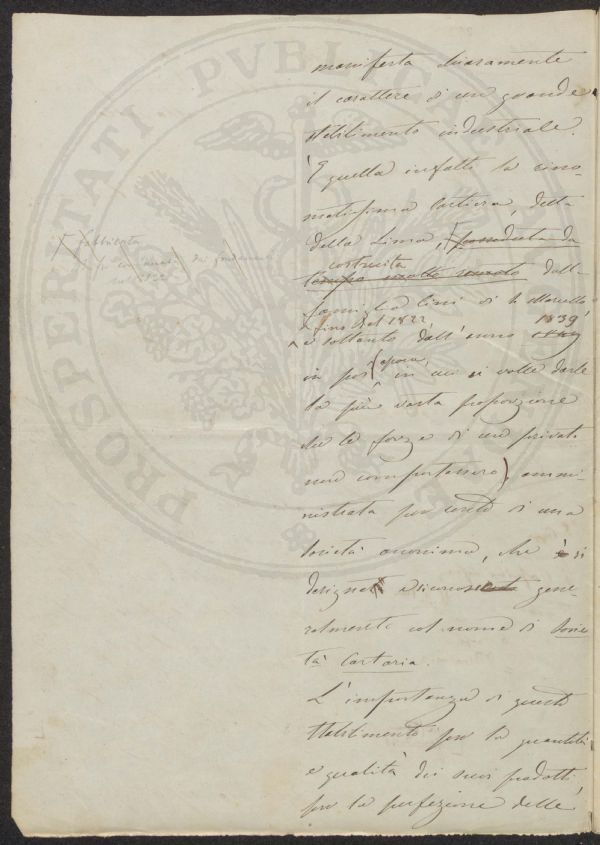 PROSPERITATI PVBLICAE
manifesta chiaramente
il carattere di un grande
stabilimento industriale.
È quella infatti la rino-
matissima Cartiera, detta
della Lima, posseduta da
costruita
tempo molto dalla
famiglia Cini di S. Marcello
fino del 1822
e soltanto dall'anno 1839
in poi
epoca,
in cui si volle darle
la più vasta proporzione
che le forze di un privato
non comportassero, ammi-
nistrata per conto di una
società anonima, che si
designa e riconosce gene-
ralmente col nome di Socie
tà Cartaria.
L'importanza di questo
stabilimento per la quantità
e qualità dei suoi prodotti,
per la perfezione delle
fabbricata